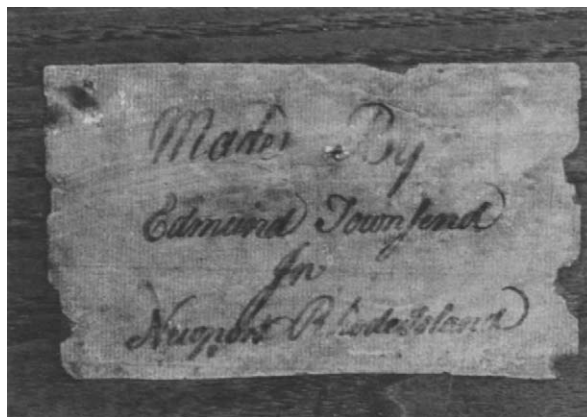 Made By
Edmund Townſend
In
Newport Rhode Island